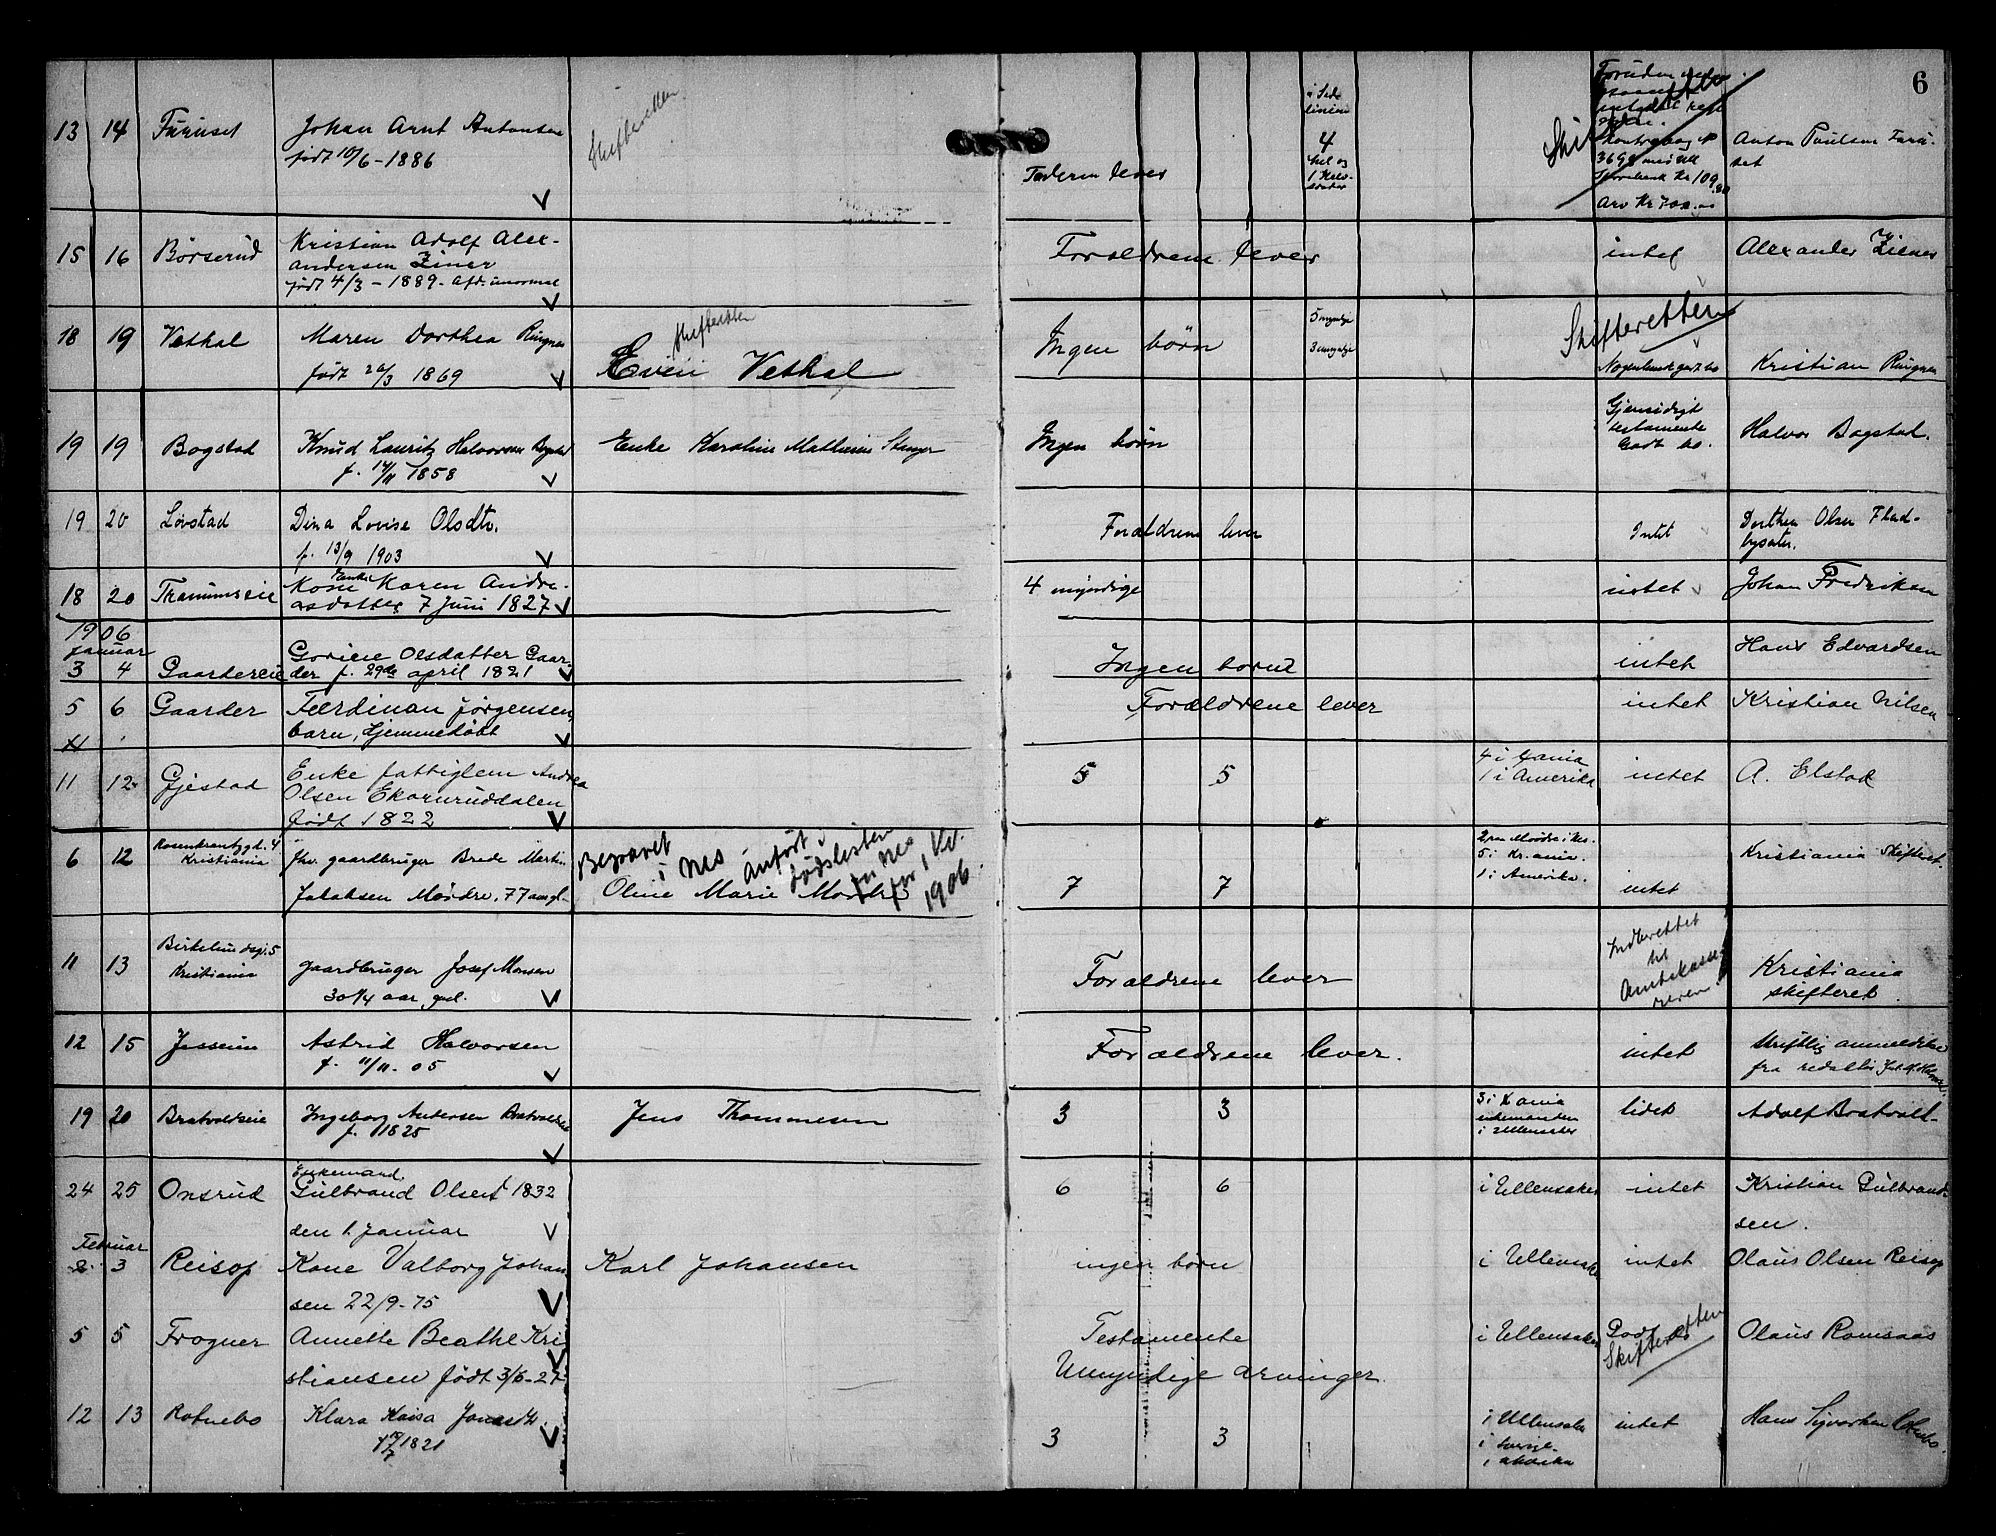 6
13 14 Furuset Johan Arnt Antonsen Skifteretten Faderen lever 4 Anton Paulsen Furu-
født 10/6 - 1886 set
hel og
1 Halv-
3698
Kr 109
Arv Kr
15 16 Børserud Kristian Adolf Alex- Forældrene lever intet Alexander Ziener
andersen Ziner
født 4/3 - 1889.
18 19 Vethal Maren Dorthea Ringnes Skifteretten Ingen børn 5 myndige Skifteretten
født 26/3 1869 Even Vethal 3 umyndige Kristian Ringnes
19 19 Bogstad Knud Lauritz Halvorsen Bogstad Enke Karoline Mathisen Ingen børn Gjensidigt Halvor Bogstad.
f. 14/11 1858 testamente
Godt bo.
19 20 Løvstad Dina Lovise Olsdtr. Forældrene lever Intet Dorthea Olsen Flad-
f. 13/9 1903 bysæter.
18 20 Kone Karen Andre- 4 myndige intet Johan Fredriksen
asdatter 7 Juni 1827
1906
Januar
3 4 Gaardereie Olsdatter Gaar- Ingen børn intet Hans Edvardsen
der f. 29de april 1821
5 6 Gaarder Ferdinan Jørgensen, Forældrene lever intet Kristian Nilsen
barn, hjemmedøbt
11 12 Gjestad Enke fattiglem Andrea 5 5 4 i Xania intet A. Elstad
Olsen Ekornruddalen 1 i Amerika
født 1822
6 12 Rosenkrantzgd. 4 fhv. gaardbruger Brede Martin Begravet i Nes. Anført i dødslisten fra Nes for 1 Kv. 1906. Kristiania Skifteret
Kristiania 5 i Kr.ania.
Jakobsen Mørdre, 77 aar gl. Oline Marie Mordre 7 7 1 i Amerika. intet
11 13 Birkelundsgt. 5 Gaardbruger Josef Monsen Forældrene lever Indberettet Kristiania
Kristiania 30 1/4 aar, gml. til skifteret.
Amtskasse-
reren
12 15 Jessein Astrid Halvorsen Forældrene lever. intet Skriftlig anmeldelse
f. 11/11 - 05 fra
19 20 Bratvoldseie Ingeborg Andersen Bratvoldseie Jens Thommesen 3 3 3 i Xania lidet Adolf Bratvoll
f. 1825 i Ullensaker
24 25 Onsrud Enkemand 6 6 i Ullensaker intet Kristian Gulbrand-
Gulbrand Olsen 1832 sen.
den 1. Januar
Februar
2. 3 Reisop Kone Valborg Johan- Karl Johansen ingen børn i Ullensaker intet Olaus Olsen Reisop
sen 22/9 - 75
5 5 Frogner Annette Beathe Kri- Testamente i Ullensaker Godt bo Olaus Romsaas
stiansen født 3/6 - 27 Umyndige arvinger. Skifteretten
12 13 Rotnebo Klara Kaisa i Ullensaker intet Hans
1821 3 3 i Sverige
i Amerika